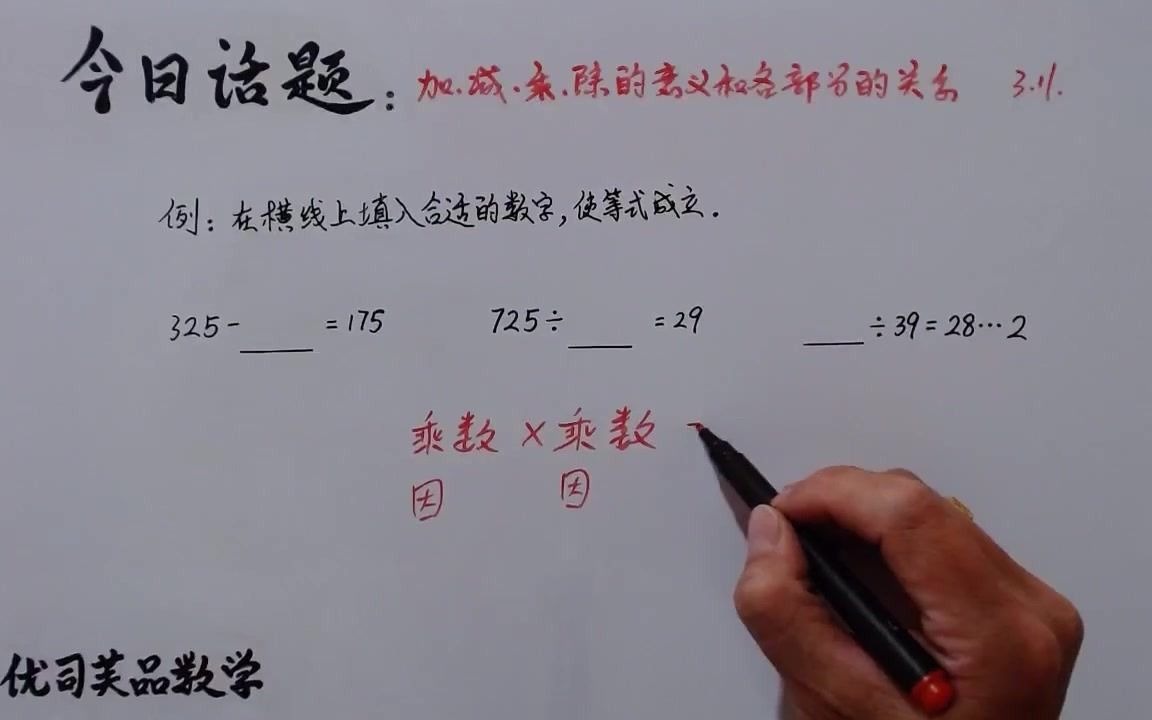 今日话题：加.减.乘.除的意义和各部分的关系 3.11.
例：在横线上填入合适的数字，使等式成立.
325-____=175 725÷____=29 ____÷39=28…2
乘数×乘数
因 因
优司芙品数学